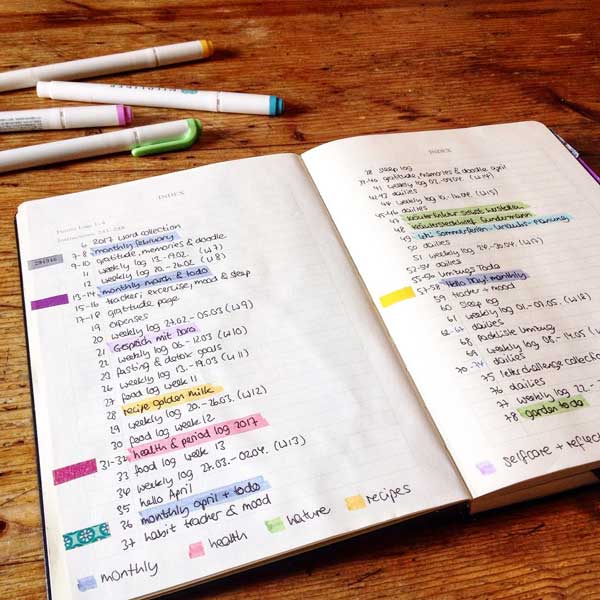 INDEX
6 2017 word collection
7-8 monthly february
9-10 gratitude, memories & doodle
11 weekly log 13.-19.02. (W7)
12 weekly log 20.-26.02. (W8)
13-14 monthly march & todo
15-16 tracker; excercise, mood & sleep
17-18 gratitude page
19 expenses
20 weekly log 27.02.-05.03 (W9)
21 Gespräch mit Dora
22 weekly log 06.-12.03 (W10)
23 fasting & detox goals
26 weekly log 13.-19.03 (W11)
27 food log week 11
28 recipe golden milk
29 weekly log 20.-26.03. (W12)
30 food log week 12
31-32 health & period log 2017
33 food log week 13
34 weekly log 27.03.-02.04. (W13)
35 hello April
36 monthly april + todo
37 habit tracker & mood
monthly
health
nature
recipes
INDEX
38 sleep log
39-40 gratitude, memories & doodle april
41 weekly log 03.-09.04. (W14)
dailies
44 weekly log 10.-16.04. (W15)
45-46 dailies
47 Kräutertinktur selbst herstellen
48
49 Sommerferien-Urlaubs-planung
50 dailies
51 weekly log 24.-30.04. (W17)
52-54 dailies
55-56 Umzugs Todo
57-58 Hello May! monthly
59 tracker + mood
60 sleep log
61 weekly log 01.-07.05. (W18)
62-67 dailies
68 Packliste Umzug
69 weekly log 08.-14.05
70-74 dailies
75 letter challenge collection
76 dailies
77 weekly log 22.-
78 garden todo
selfcare + reflect